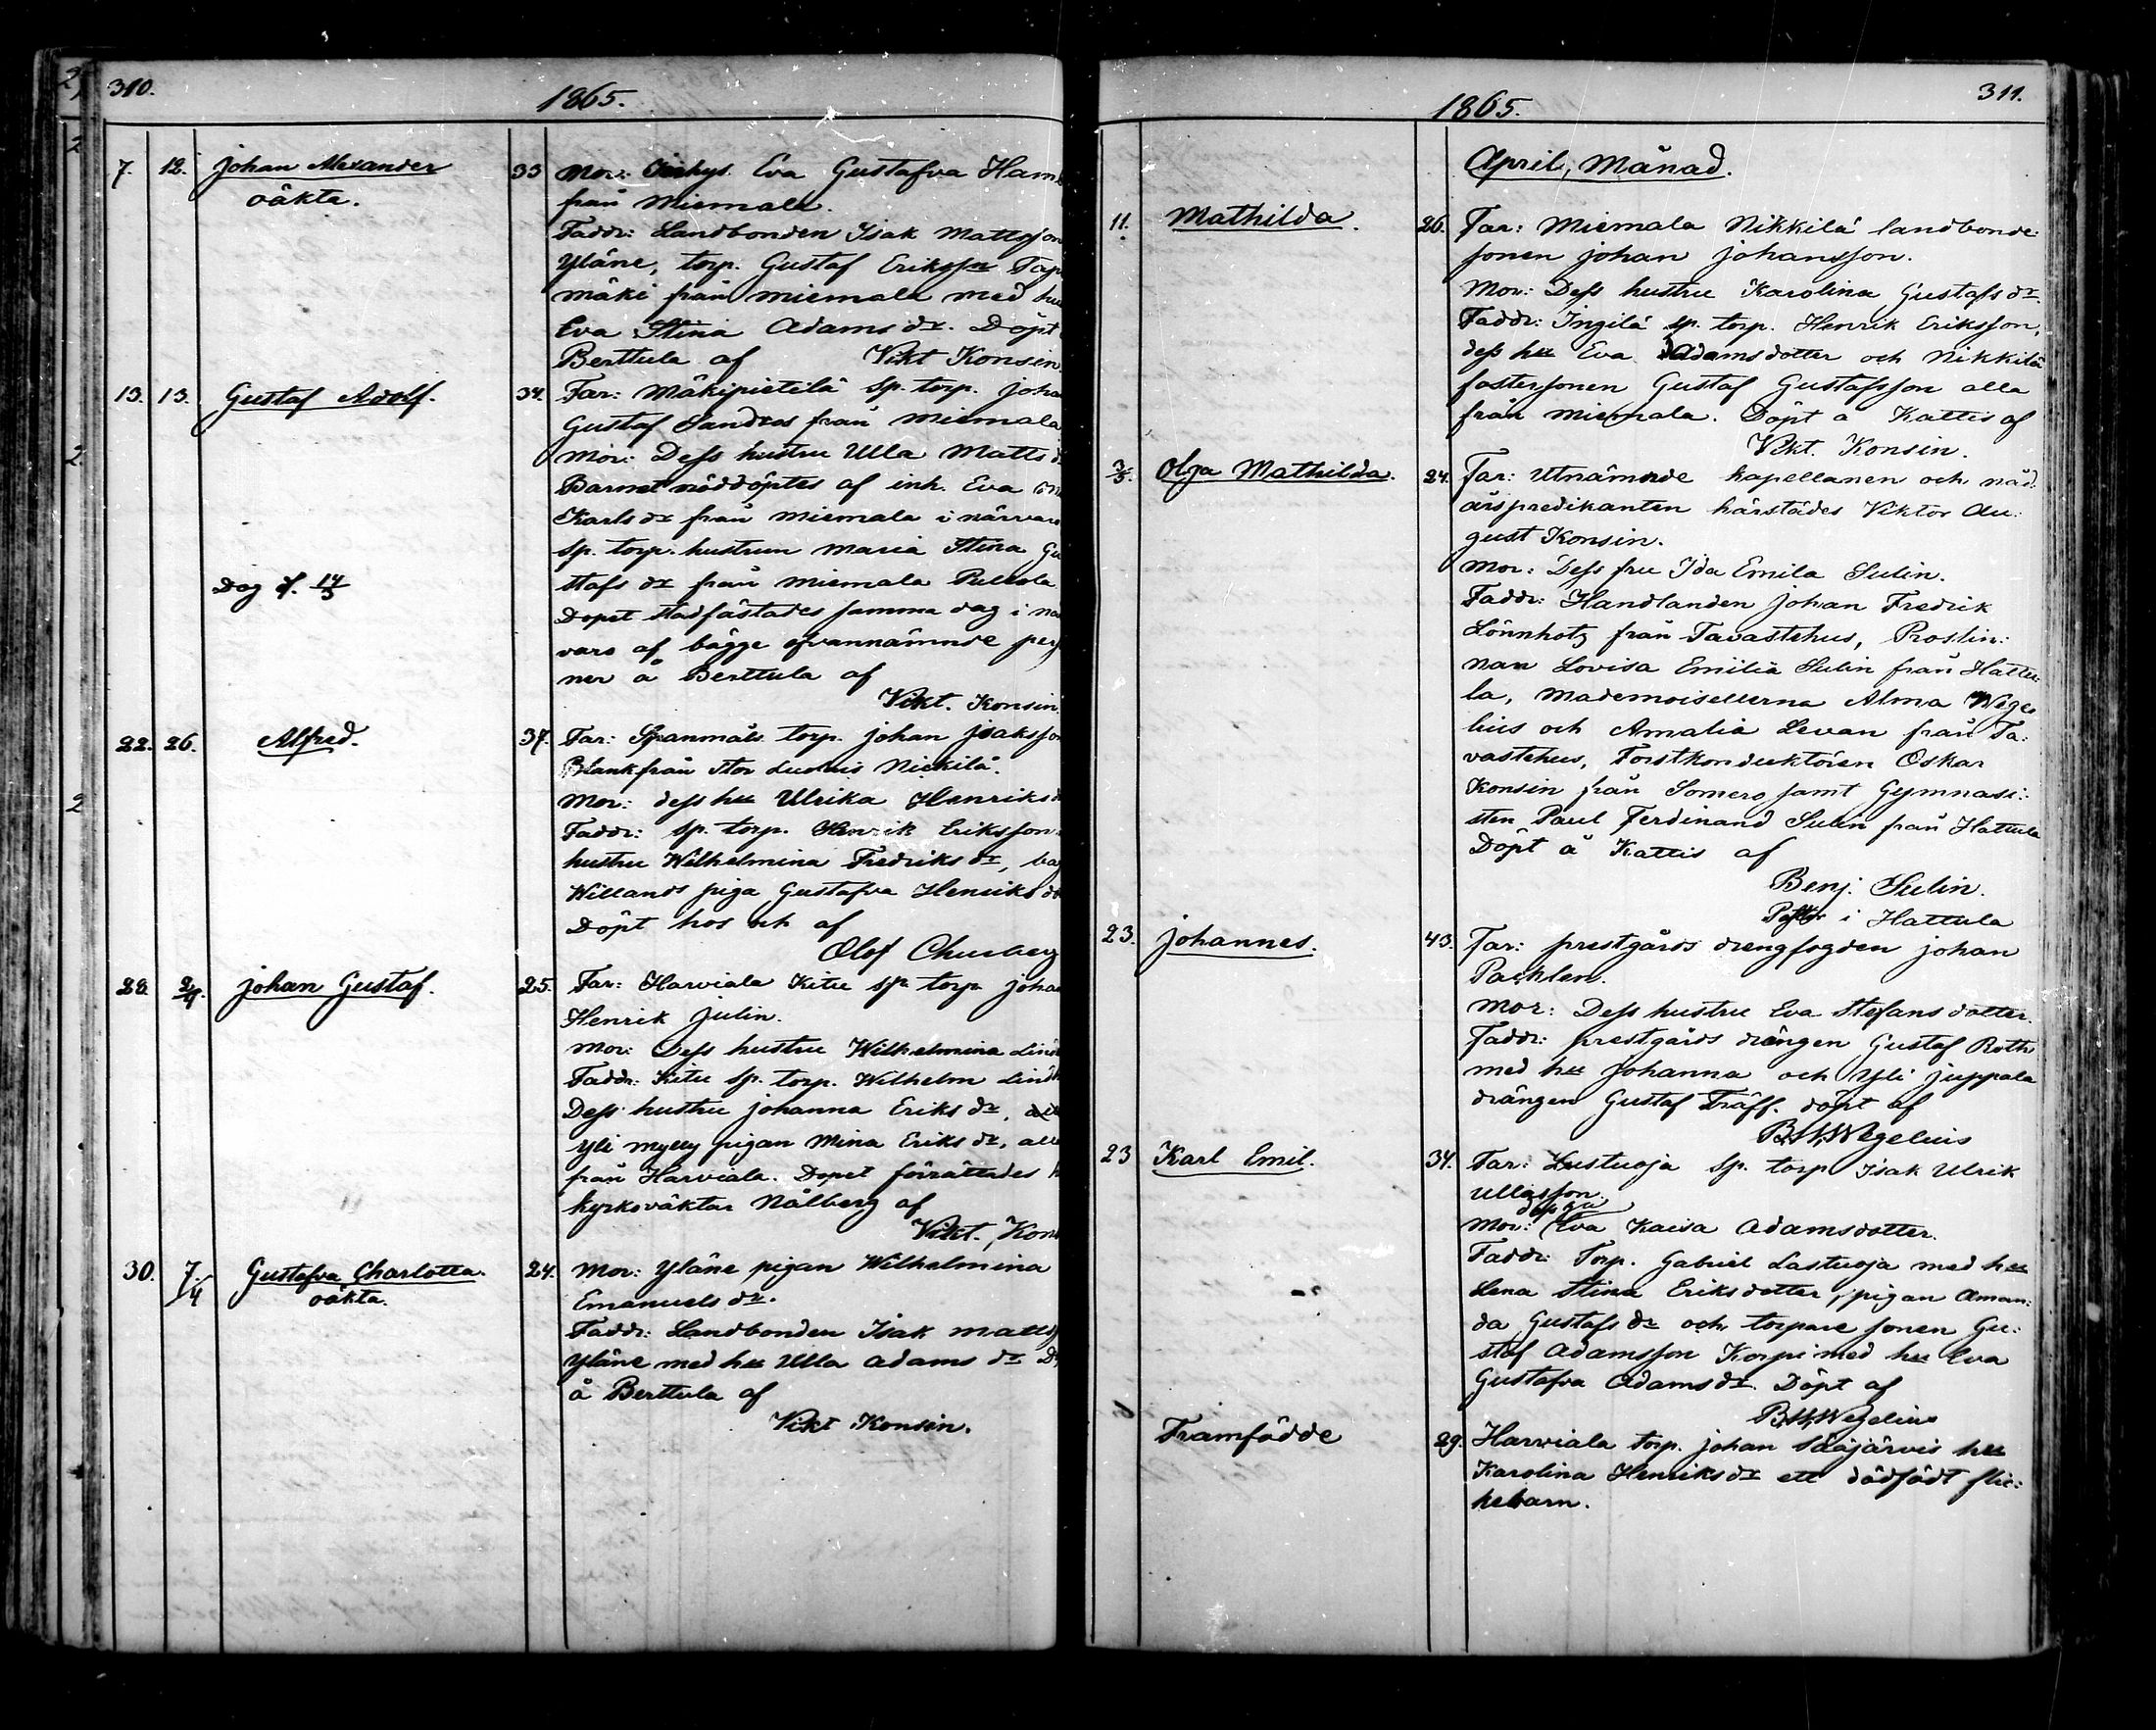 310.
1865.
7. 12. Johan Alexander 33 Mor: Inhys. Eva Gustafva Ham
oäkta. från Miemala.
Faddr: Landbonden Isak Mattsson
Yläne, torp. Gustaf Eriksson Tapi
mäki från Miemala med hu
Eva Stina Adams dr. Döpt
Berttula af Vikt Konsin.
13. 13. Gustaf Adolf. 34. Far: Mäkipietilä sp. torp. Joha
Gustaf Sandros från Miemala
Mor: Dess hustru Ulla Matts d
Barnet nöddöptes af inh. Eva
Karls dr från Miemala i närvaro
sp. torp. hustrun Maria Stina Gu
Dog d. 14/3 stafs dr från Miemala
Dopet stadfästades samma dag i nä
varo af bägge ofvannämnde pers
ner å Berttula af
Vikt. Konsin.
22. 26. Alfred. 37. Far: Spanmåls torp. Johan Isaksson
Blank från Stor Luolais Nickilä.
Mor: dess hu Ulrika Henriks d
Faddr: sp. torp. Henrik Eriksson
hustru Wilhelmina Fredriks dr,
Willands piga Gustafva Henriks dr
Döpt hos och af
Olof Churberg
28. 2/4. Johan Gustaf. 25. Far: Harviala Kitu sp. torp Joha
Henrik Julin.
Mor: Dess hustru Wilhelmina Lind
Faddr: Kitu sp. torp. Wilhelm Lind
Dess hustru Johanna Eriks dr,
Yli mylly pigan Mina Eriks dr, alla
från Harviala. Dopet förrättades h
kyrkoväktar Nålberg af
Vikt. Kons
30. 7/4 Gustafva Charlotta. 24. Mor: Yläne pigan Wilhelmina
oäkta. Emanuels dr.
Faddr: Landbonden Isak Matts
Yläne med hu Ulla Adams dr D
å Berttula af
Vikt Konsin.
311.
1865.
April, Månad.
11. Mathilda. 26. Far: Miemala Nikkilä landbonde
sonen Johan Johansson.
Mor: Dess hustru Karolina Gustafs dr.
Faddr: Ingilä sp. torp. Henrik Eriksson,
dess hu Eva Adamsdotter och Nikkilä
fostersonen Gustaf Gustafsson alla
från Miemala. Döpt å Kattis af
Vikt. Konsin.
3/5. Olga Mathilda. 24. Far: Utnämnde kapellanen och nåd:
årspredikanten härstädes Viktor Au:
gust Konsin.
Mor: Dess fru Ida Emila Sulin.
Faddr: Handlanden Johan Fredrik
Lönnholtz från Tavastehus, Prostin:
nan Lovisa Emilia Sulin från Hattu:
la, Mademoisellerna Alma Wege
lius och Amalia Levan från Ta:
vastehus, Forstkonduktören Oskar
Konsin från Somero samt Gymnasi:
sten Paul Ferdinand Sulin från Hattula
Döpt å Kattis af
Benj. Sulin.
Pastor i Hattula
23. Johannes. 43. Far: prestgårds drengfogden Johan
Pachlen.
Mor: Dess hustru Eva Stefansdotter.
Faddr: prestgårds drängen Gustaf Roth
med hu Johanna och Yli Juppala
drängen Gustaf Träff. döpt af
B.W. Wegelius
23 Karl Emil. 34. Far: Lastuoja sp. torp Isak Ulrik
Ullasson.
dess hu
Mor: Eva Kaisa Adamsdotter.
Faddr: Torp. Gabriel Lastuoja med hu
Lena Stina Eriksdotter, pigan Aman:
da Gustafs dr och torpare sonen Gu:
staf Adamsson Korpi med hu Eva
Gustafva Adams dr. Döpt af
B.W. Wegelius
Framfödde 29. Harviala torp. Johan Sääjärvis hu
Karolina Henriks dr ett dödfödt flic:
kebarn.